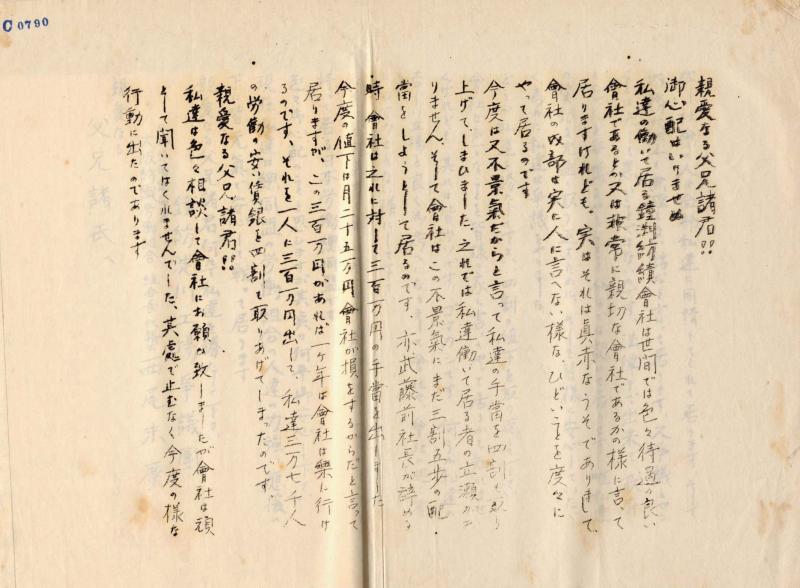 C 0790
親愛なる父兄諸君!!
御心配はいりませぬ
私達の働いて居る鐘渕紡績會社は世間では色々待遇の良い
會社であるとか又は非常に親切な會社であるかの様に言って
居りますけれども、実はそれは眞赤なうそでありまして、
會社の内部は実に人に言へない様な、ひどいことを度々に
やって居るのです
今度は又不景氣だからと言って私達の手當を四割も取り
上げて、しまひました、之れでは私達働いて居る者の立瀬があ
りません、そして會社はこの不景氣にまだ三割五歩の配
當をしようとして居るのです、亦武藤前社長が辞める
時、會社は之れに対して三百万円の手當を出しました
今度の値下は月二十五万円會社が損をするからだと言って
居りますが、この三百万円があれば一ヶ年は會社は樂に行け
るのです、それを一人に三百万円出して、私達三万七千人
の労働の安い賃銀を四割も取りあげてしまったのです、
親愛なる父兄諸君!!
私達は色々相談して會社にお願ひ致しましたが會社は頑
として聞いてはくれませんでした、其處で止むなく今度の様な
行動に出たのであります
父兄諸氏